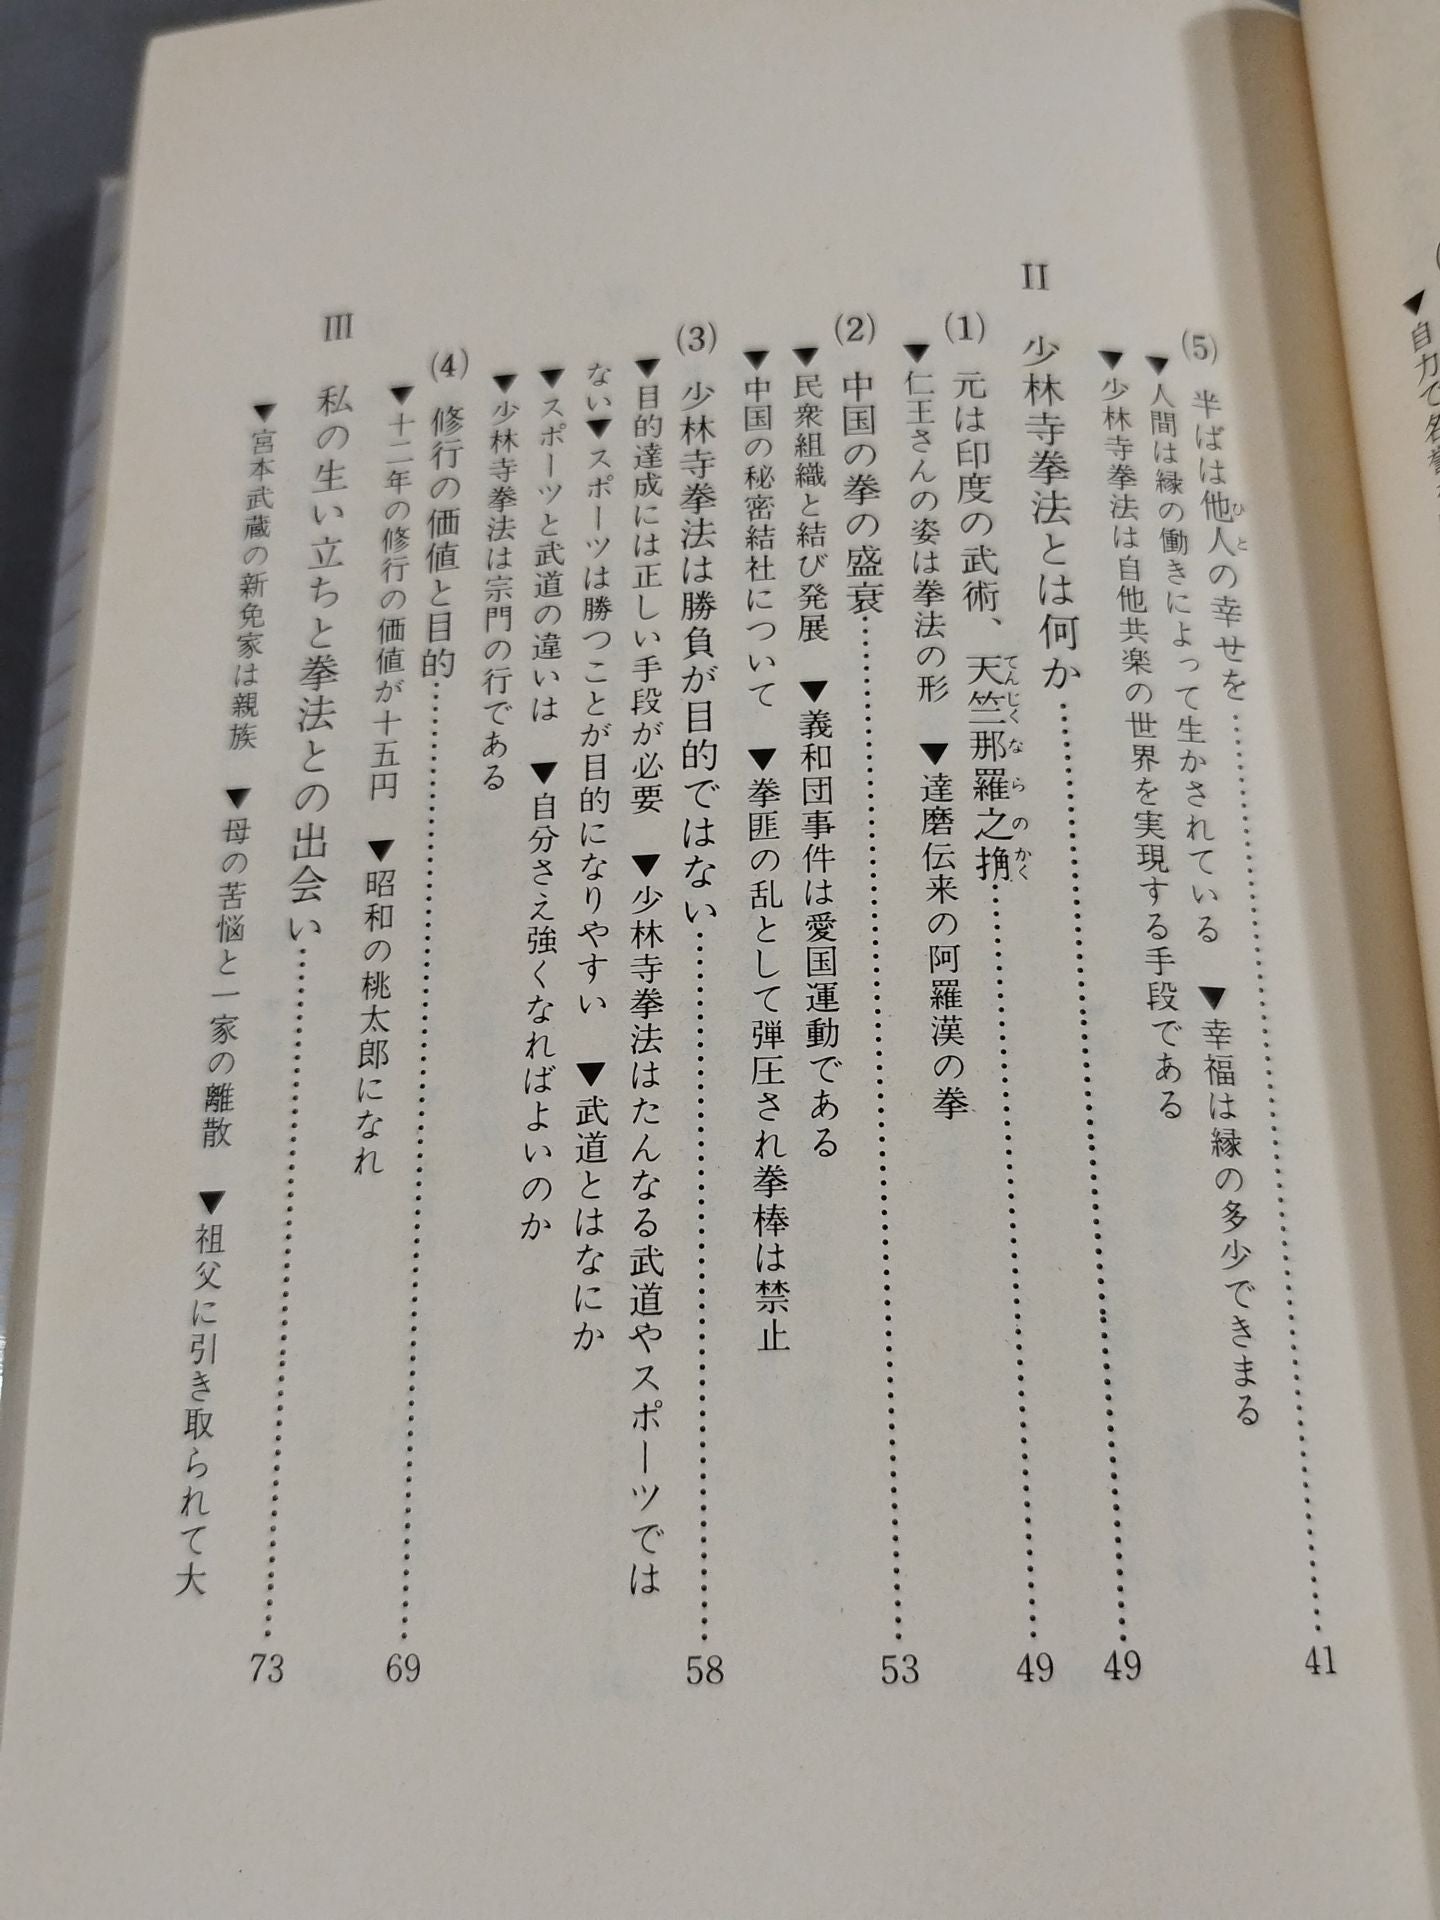 (5) 半ばは他人の幸せを……………………41
▼人間は縁の働きによって生かされている ▼幸福は縁の多少できまる
▼少林寺拳法は自他共楽の世界を実現する手段である
II 少林寺拳法とは何か……………………49
(1) 元は印度の武術、天竺那羅之捔……………………49
▼仁王さんの姿は拳法の形 ▼達磨伝来の阿羅漢の拳
(2) 中国の拳の盛衰……………………53
▼民衆組織と結び発展 ▼義和団事件は愛国運動である
▼中国の秘密結社について ▼拳匪の乱として弾圧され拳棒は禁止
(3) 少林寺拳法は勝負が目的ではない……………………58
▼目的達成には正しい手段が必要 ▼少林寺拳法はたんなる武道やスポーツでは
ない▼スポーツは勝つことが目的になりやすい ▼武道とはなにか
▼スポーツと武道の違いは ▼自分さえ強くなればよいのか
▼少林寺拳法は宗門の行である
(4) 修行の価値と目的……………………69
▼十二年の修行の価値が十五円 ▼昭和の桃太郎になれ
III 私の生い立ちと拳法との出会い……………………73
▼宮本武蔵の新免家は親族 ▼母の苦悩と一家の離散 ▼祖父に引き取られて大